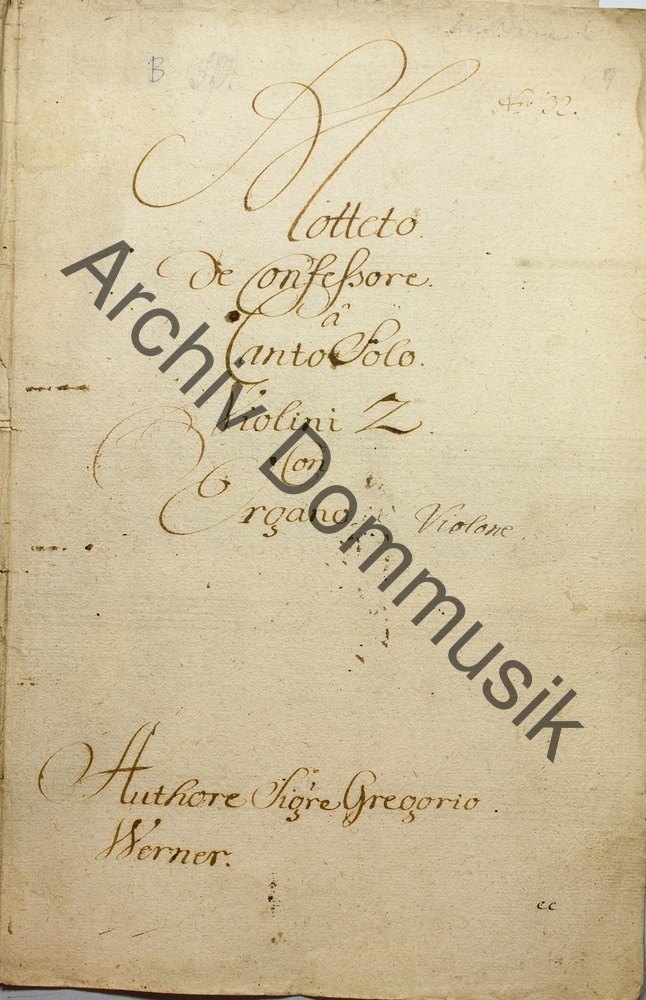 B
No 32.
Motteto
de Confessore.
â
Canto Solo.
Violini 2
Con
Organo. Violone
Authore Sigre Gregorio
Werner.
cc
Archiv Dommusik